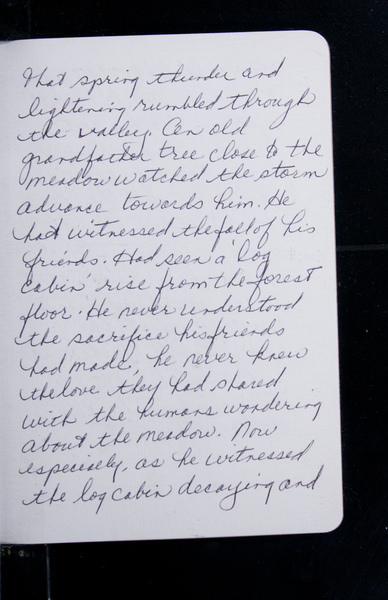 That spring thunder and
lightening rumbled through
the valley. An old
grandfather tree close to the
meadow watched the storm
advance towards him. He
had witnessed the fall of his
friends. Had seen a 'log
cabin' rise from the forest
floor. He never understood
the sacrifice his friends
had made, he never knew
the love they had shared
with the humans wondering
about the meadow. Now
especially, as he witnessed
the log cabin decaying and